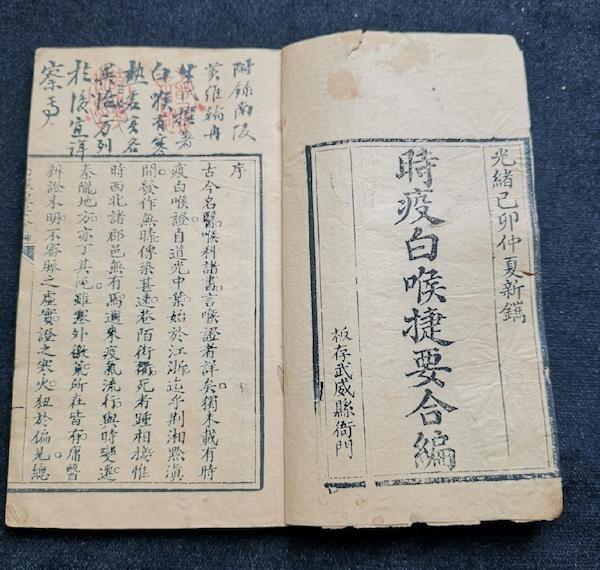 光緒己卯仲夏新鐫
時疫白喉捷要合編
板存武威縣衙門
附錄南陵
黃維翰冉
生氏撰者
白喉有寒
熱虛實各
異治方列
於後宜詳
察焉
序
古今名醫喉科諸書言喉證者詳矣獨未載有時
疫白喉證自道光中葉始於江浙迄乎荆湘黔滇
間發作無時傳染甚速巷陌街衢死者踵相接惟
時西北諸郡邑無有焉邇來疫氣流行與時變遷
秦隴地方亦丁其阨雖塞外徼荒所在皆有庸醫
辨證未明不審脈之虛實證之寒火狃於偏見總